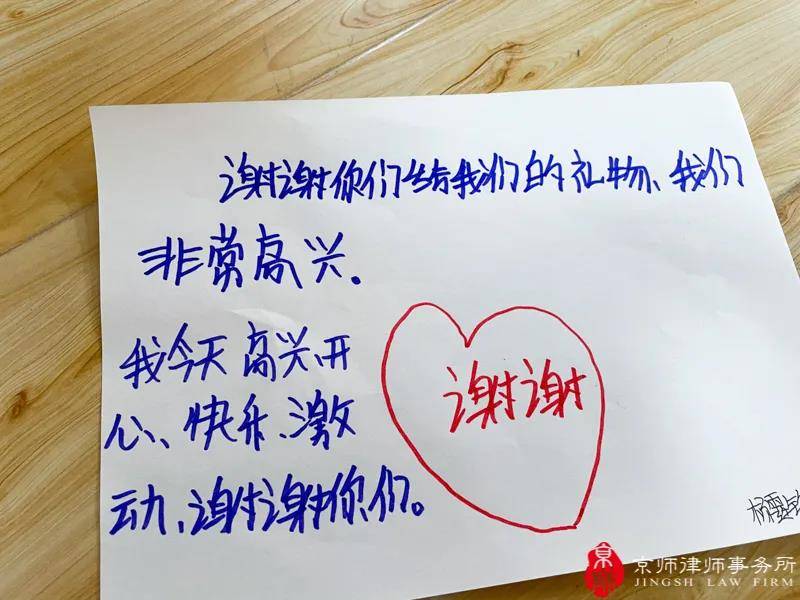 谢谢你们给我们的礼物、我们
非常高兴.
我今天高兴、开
心、快乐、激
动、谢谢你们。
谢谢
京师律师事务所
JINGSH LAW FIRM